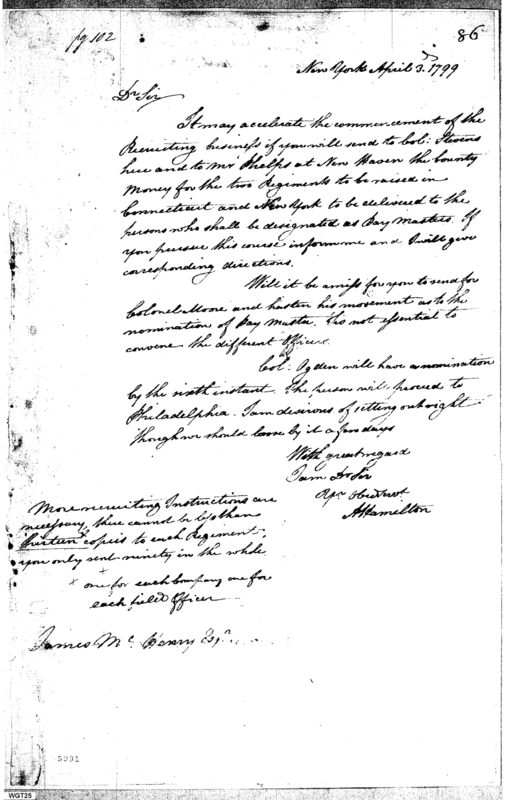 pg. 102
86
New York April 3d. 1799
Dr Sir
It may accelerate the commencement of the
Recruiting business if you will send to Col: Stevens
here and to Mr Phelps at New Haven the bounty
Money for the two Regiments to be raised in
Connecticut and New York to be delivered to the
persons who shall be designated as Pay Masters. If
you pursue this course inform me and I will give
corresponding directions.
Will it be amiss for you to send for
Colonel Moore and hasten his movement as to the
nomination of Pay Master. Tis not essential to
convene the different Officers.
Col: Ogden will have a nomination
by the sixth instant. The person will proceed to
Philadelphia. I am desirous of setting out right
though we should loose by it a few days
With great regard
I am Dr Sir
Yr Obed Servt
A Hamilton
More recruiting Instructions are
necessary, there cannot be less than
thirteen copies to each Regiment.
you only sent ninety in the whole
x one for each Company one for
each field Officer
James Mc Henry Esqr.
5991
WGT25